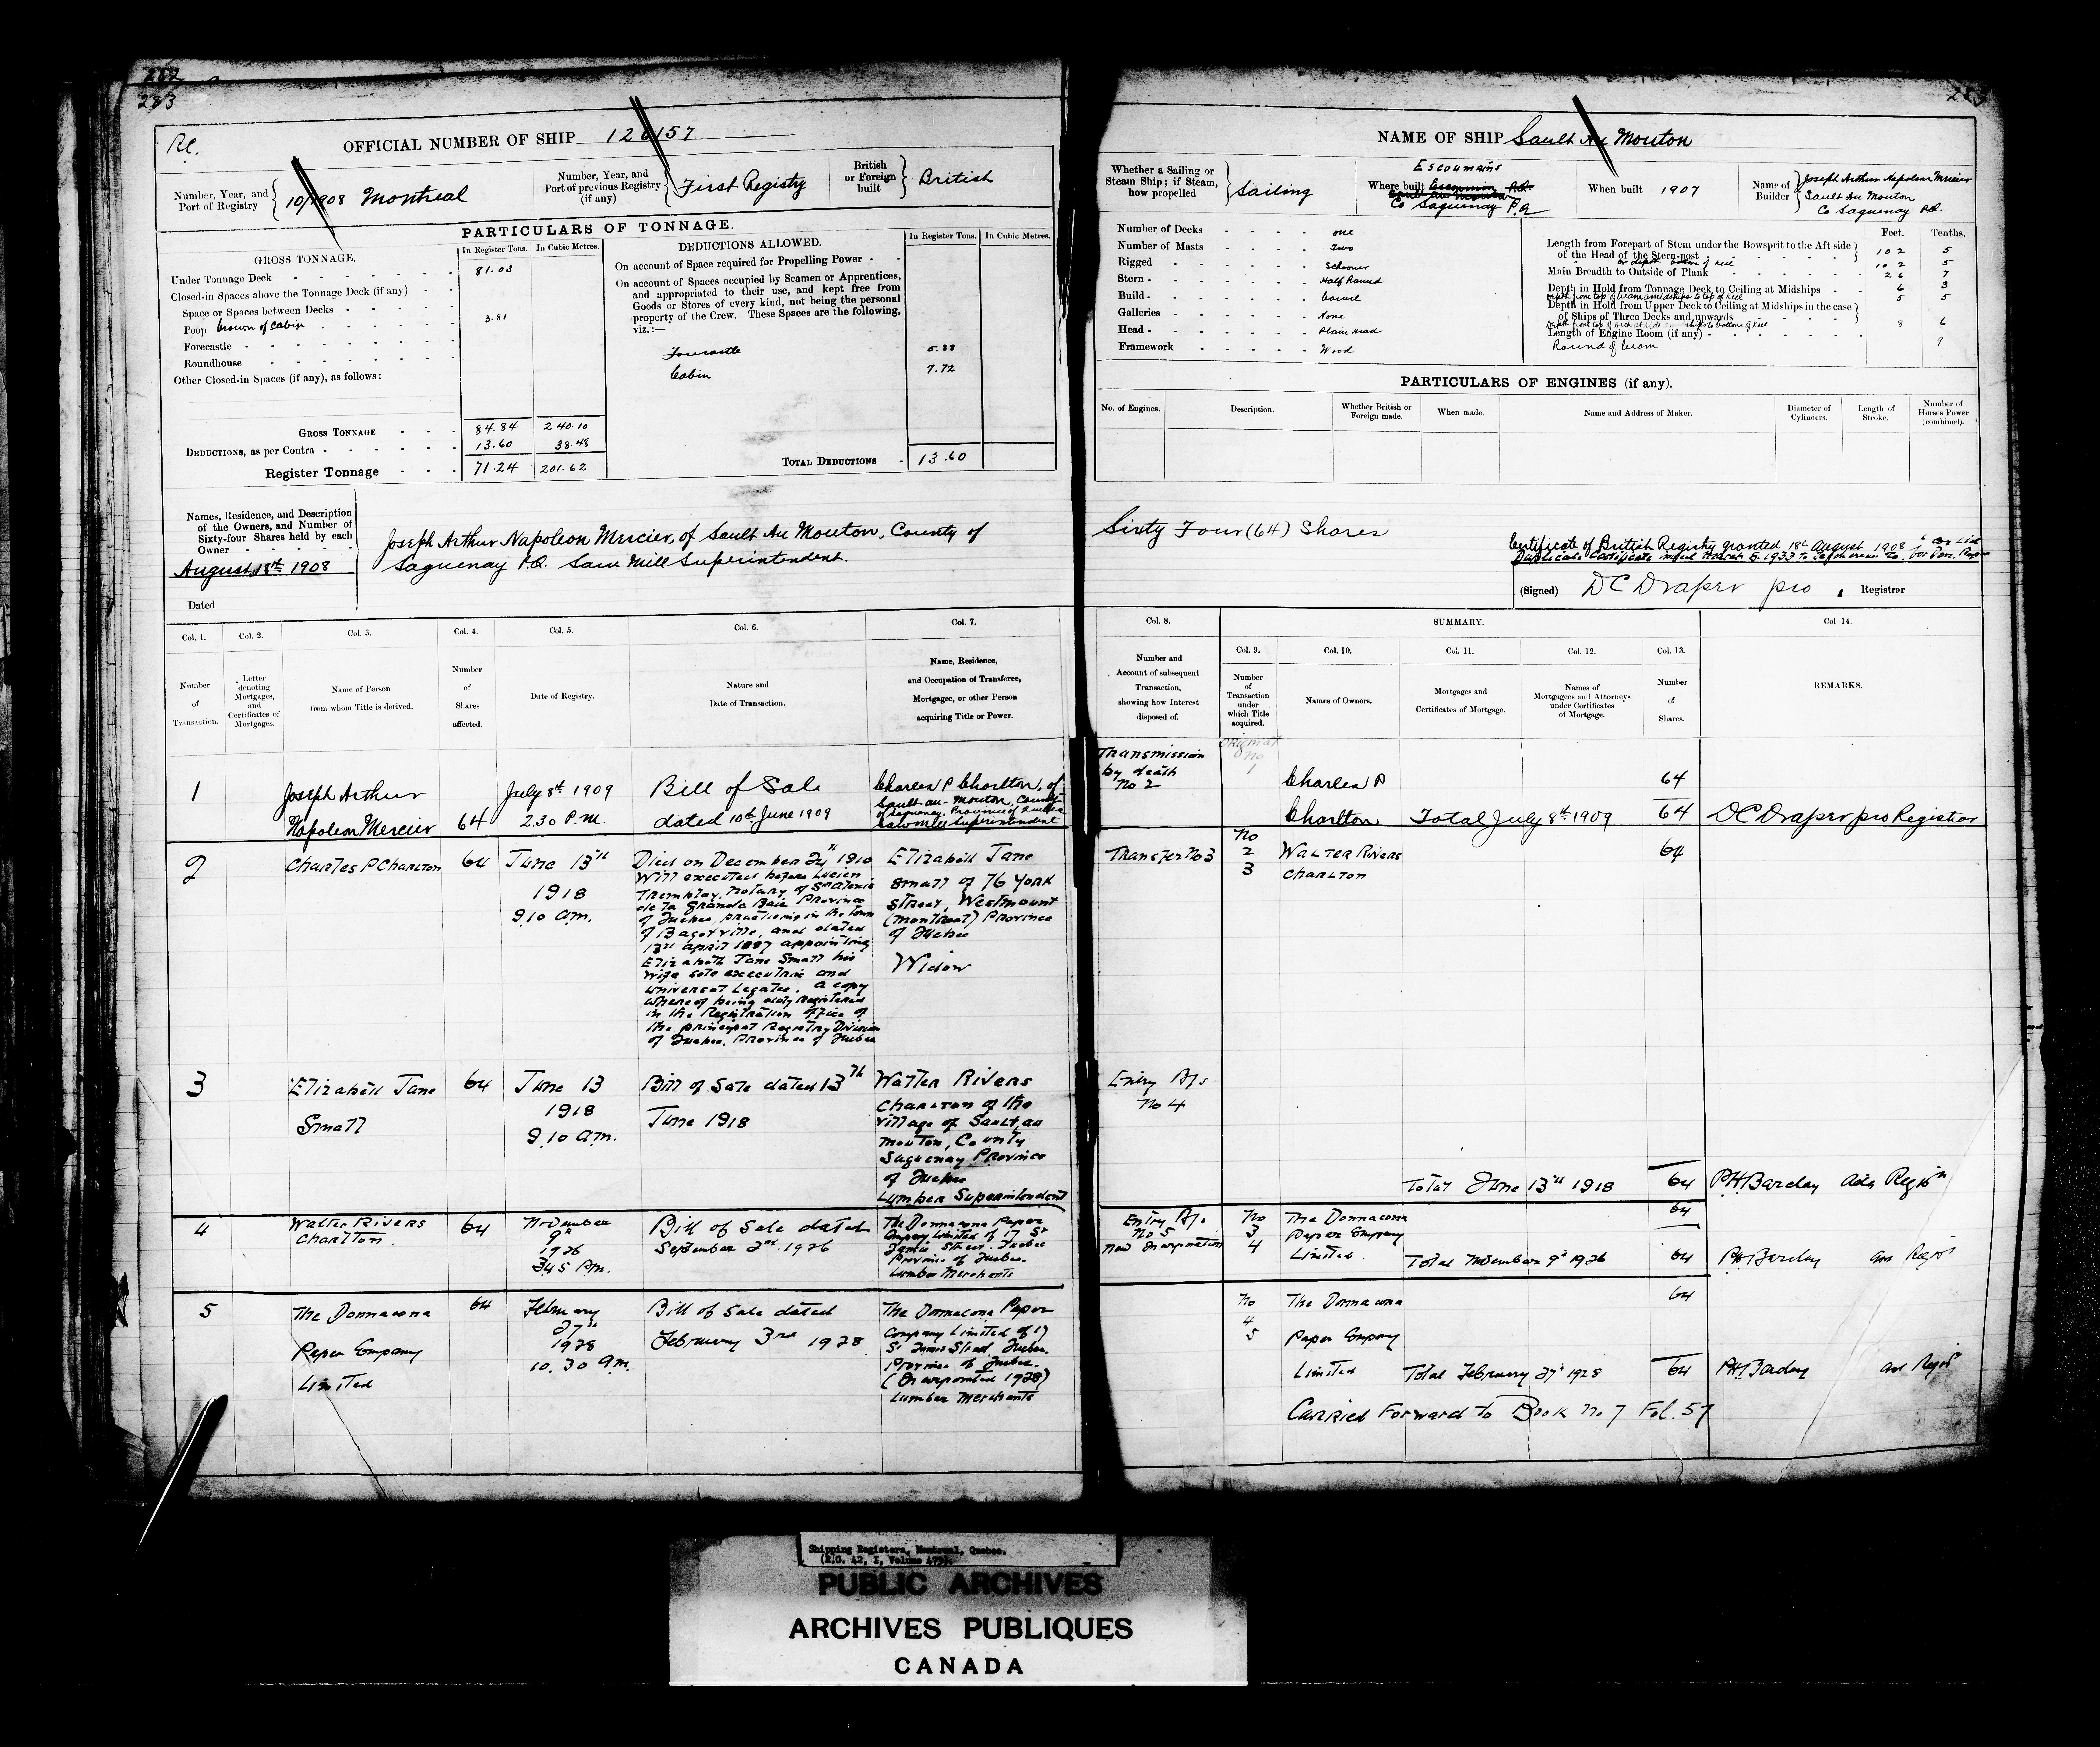 282
283
Re.
OFFICIAL NUMBER OF SHIP 126157
Number, Year, and Port of Registry 10/1908 Montreal
Number, Year, and Port of previous Registry (if any) First Registry
British or Foreign built British
PARTICULARS OF TONNAGE.
GROSS TONNAGE.
In Register Tons.
In Cubic Metres.
Under Tonnage Deck 81.03
Closed-in Spaces above the Tonnage Deck (if any)
Space or Spaces between Decks
Poop Crown of Cabin 3.81
Forecastle
Roundhouse
Other Closed-in Spaces (if any), as follows:
GROSS TONNAGE 84.84 240.10
DEDUCTIONS, as per Contra 13.60 38.48
Register Tonnage 71.24 201.62
DEDUCTIONS ALLOWED.
In Register Tons.
In Cubic Metres.
On account of Space required for Propelling Power
On account of Spaces occupied by Seamen or Apprentices,
and appropriated to their use, and kept free from
Goods or Stores of every kind, not being the personal
property of the Crew. These Spaces are the following,
viz.:—
Forecastle 5.88
Cabin 7.72
TOTAL DEDUCTIONS 13.60
Names, Residence, and Description
of the Owners, and Number of
Sixty-four Shares held by each
Owner
August 18th 1908
Dated
Joseph Arthur Napoleon Mercier, of Sault Au Mouton, County of
Saguenay P.Q. Saw Mill Superintendent.
Col. 1. Col. 2. Col. 3. Col. 4. Col. 5. Col. 6. Col. 7.
Number of Transaction.
Letter denoting Mortgages, and Certificates of Mortgages.
Name of Person from whom Title is derived.
Number of Shares affected.
Date of Registry.
Nature and Date of Transaction.
Name, Residence, and Occupation of Transferee, Mortgagee, or other Person acquiring Title or Power.
1
Joseph Arthur
Napoleon Mercier
64
July 8th 1909
2.30 P.M.
Bill of Sale
dated 10th June 1909
Charles P Charlton, of
Sault-au-Mouton, County
of Saguenay, Province of Quebec
Sawmill Superintendent
2
Charles P Charlton
64
June 13th
1918
9.10 am.
Died on December 24th 1910
Will executed before Lucien
Tremblay, Notary of St Alexis
de la Grande Baie Province
of Quebec, practising in the town
of Bagotville, and dated
13th april 1887 appointing
Elizabeth Jane Small his
wife sole executrix and
universal Legatee. a copy
whereof being duly Registered
in the Registration office of
the principal Registry Division
of Quebec, Province of Quebec
Elizabeth Jane
Small of 76 York
Street, Westmount
(Montreal) Province
of Quebec
Widow
3
Elizabeth Jane
Small
64
June 13
1918
9.10 am.
Bill of Sale dated 13th
June 1918
Walter Rivers
Charlton of the
village of Sault au
Mouton, County
Saguenay Province
of Quebec
Lumber Superintendent
4
Walter Rivers
Charlton
64
November
9th
1926
3.45 Pm.
Bill of Sale dated
September 2nd 1926
The Donnacona Paper
Company Limited of 17 St
James Street. Quebec
Province of Quebec.
Lumber Merchants
5
The Donnacona
Paper Company
Limited
64
February
27th
1928
10.30 am.
Bill of Sale dated
February 3rd 1928
The Donnacona Paper
Company Limited of 17
St James Street Quebec.
Province of Quebec.
(Incorporated 1928)
Lumber Merchants
NAME OF SHIP Sault Au Mouton
Whether a Sailing or Steam Ship; if Steam, how propelled Sailing
Escoumains
Where built
Co Saguenay P.Q
When built 1907
Name of Builder Joseph Arthur Napoleon Mercier
Sault Au Mouton
Co Saguenay P.Q.
Number of Decks one
Number of Masts Two
Rigged Schooner
Stern Half Round
Build Carvel
Galleries None
Head Plain Head
Framework Wood
Feet. Tenths.
Length from Forepart of Stem under the Bowsprit to the Aft side
of the Head of the Stern-post 102 5
102 5
Main Breadth to Outside of Plank 26 7
Depth in Hold from Tonnage Deck to Ceiling at Midships 6 3
depth from top of beam amidships to top of keel 5 5
Depth in Hold from Upper Deck to Ceiling at Midships in the case
of Ships of Three Decks and upwards
8 6
Length of Engine Room (if any)
Round of beam 9
PARTICULARS OF ENGINES (if any).
No. of Engines.
Description.
Whether British or Foreign made.
When made.
Name and Address of Maker.
Diameter of Cylinders.
Length of Stroke.
Number of Horses Power (combined).
Sixty Four (64) Shares
Certificate of British Registry granted 18th August 1908
(Signed) DC Draper pro, Registrar
Col. 8.
SUMMARY.
Col. 9. Col. 10. Col. 11. Col. 12. Col. 13.
Col 14.
Number and Account of subsequent Transaction, showing how Interest disposed of.
Number of Transaction under which Title acquired.
Names of Owners.
Mortgages and Certificates of Mortgage.
Names of Mortgagees and Attorneys under Certificates of Mortgage.
Number of Shares.
REMARKS.
Transmission
by death
No 2
Original
No
1
Charles P
Charlton
64
Total July 8th 1909
64
DC Draper pro Registrar
Transfer No 3
No
2
3
Walter Rivers
Charlton
64
Entry
No 4
Total June 13th 1918
64
PH Barclay
Entry
No 5
New Incorporation
No
3
4
The Donnacona
Paper Company
Limited.
64
Total November 9th 1926
64
PH Barclay
No
4
5
The Donnacona
Paper Company
Limited
64
Total February 27th 1928
64
PH Barclay
Carried Forward to Book No 7 Fol. 57
Shipping Registers, Montreal, Quebec.
PUBLIC ARCHIVES
ARCHIVES PUBLIQUES
CANADA